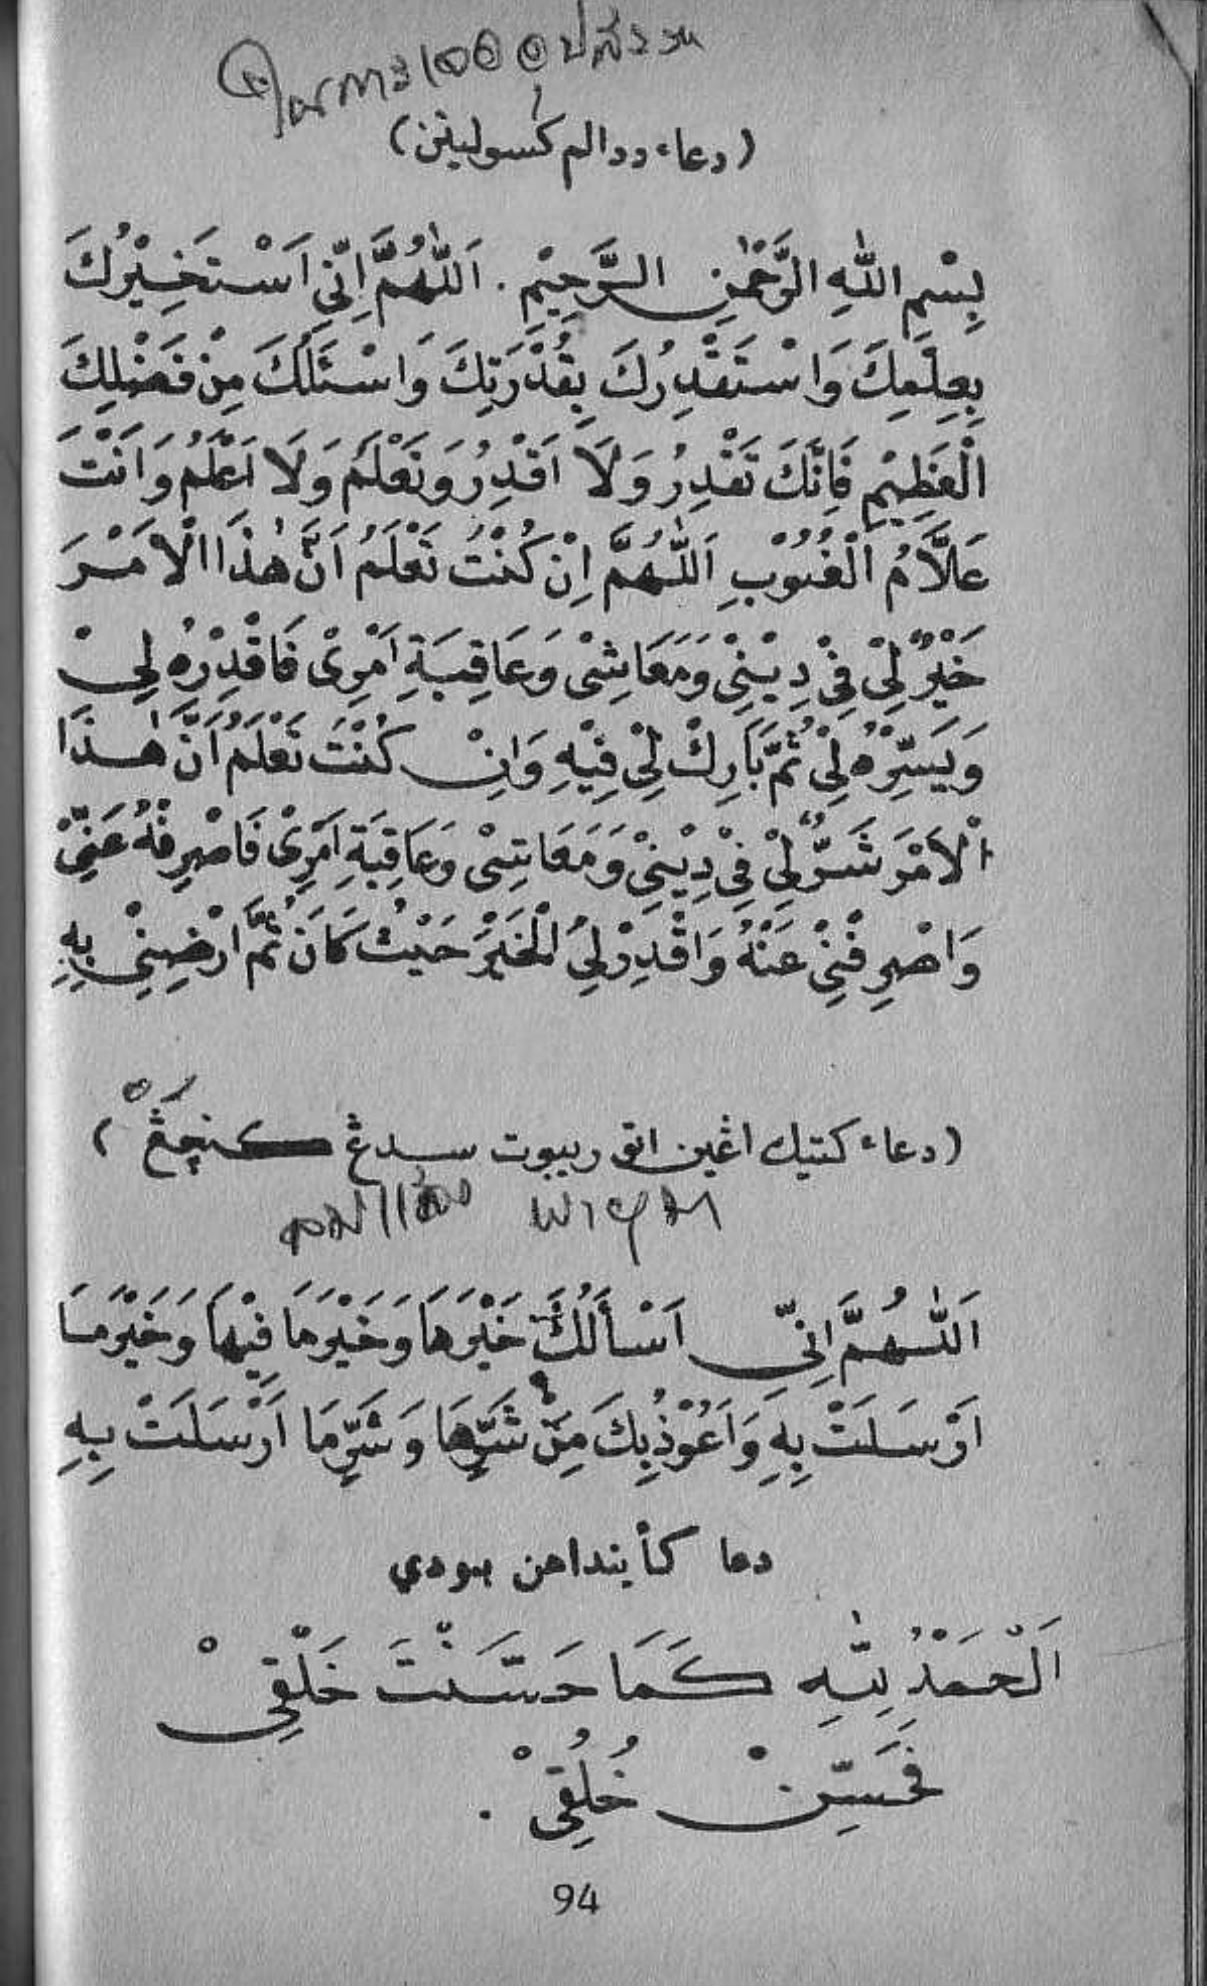 (دعاء ددالم کسوليتن)
بِسْمِ اللّٰهِ الرَّحْمٰنِ الرَّحِيْمِ . اَللّٰهُمَّ اِنِّي اَسْتَخِيْرُكَ
بِعِلْمِكَ وَاسْتَقْدِرُكَ بِقُدْرَتِكَ وَاسْئَلُكَ مِنْ فَضْلِكَ
الْعَظِيْمِ فَاِنَّكَ تَقْدِرُ وَلَا اَقْدِرُ وَتَعْلَمُ وَلَا اَعْلَمُ وَاَنْتَ
عَلَّامُ الْغُيُوْبِ اَللّٰهُمَّ اِنْ كُنْتَ تَعْلَمُ اَنَّ هٰذَا الْاَمْرَ
خَيْرٌ لِيْ فِيْ دِيْنِيْ وَمَعَاشِىْ وَعَاقِبَةِ اَمْرِىْ فَاقْدِرْهُ لِيْ
وَيَسِّرْهُ لِيْ ثُمَّ بَارِكْ لِيْ فِيْهِ وَاِنْ كُنْتَ تَعْلَمُ اَنَّ هٰذَا
الْاَمْرَ شَرٌّ لِيْ فِيْ دِيْنِيْ وَمَعَاشِىْ وَعَاقِبَةِ اَمْرِىْ فَاصْرِفْهُ عَنِّيْ
وَاصْرِفْنِيْ عَنْهُ وَاقْدِرْ لِيَ الْخَيْرَ حَيْثُ كَانَ ثُمَّ ارْضِنِيْ بِهِ
(دعاء کتيك اڠين اتو ريبوت سدڠ کنچڠ)
اَللّٰهُمَّ اِنِّي اَسْأَلُكَ خَيْرَهَا وَخَيْرَمَا فِيْهَا وَخَيْرَمَا
اَرْسَلَتْ بِهِ وَاَعُوْذُبِكَ مِنْ شَرِّهَا وَشَرِّمَا اَرْسَلَتْ بِهِ
دعا کأينداهن بودي
اَلْحَمْدُ لِلّٰهِ كَمَا حَسَّنْتَ خَلْقِيْ
فَحَسِّنْ خُلُقِىْ .
94